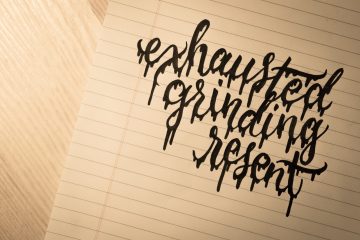 exhausted
grinding
resent